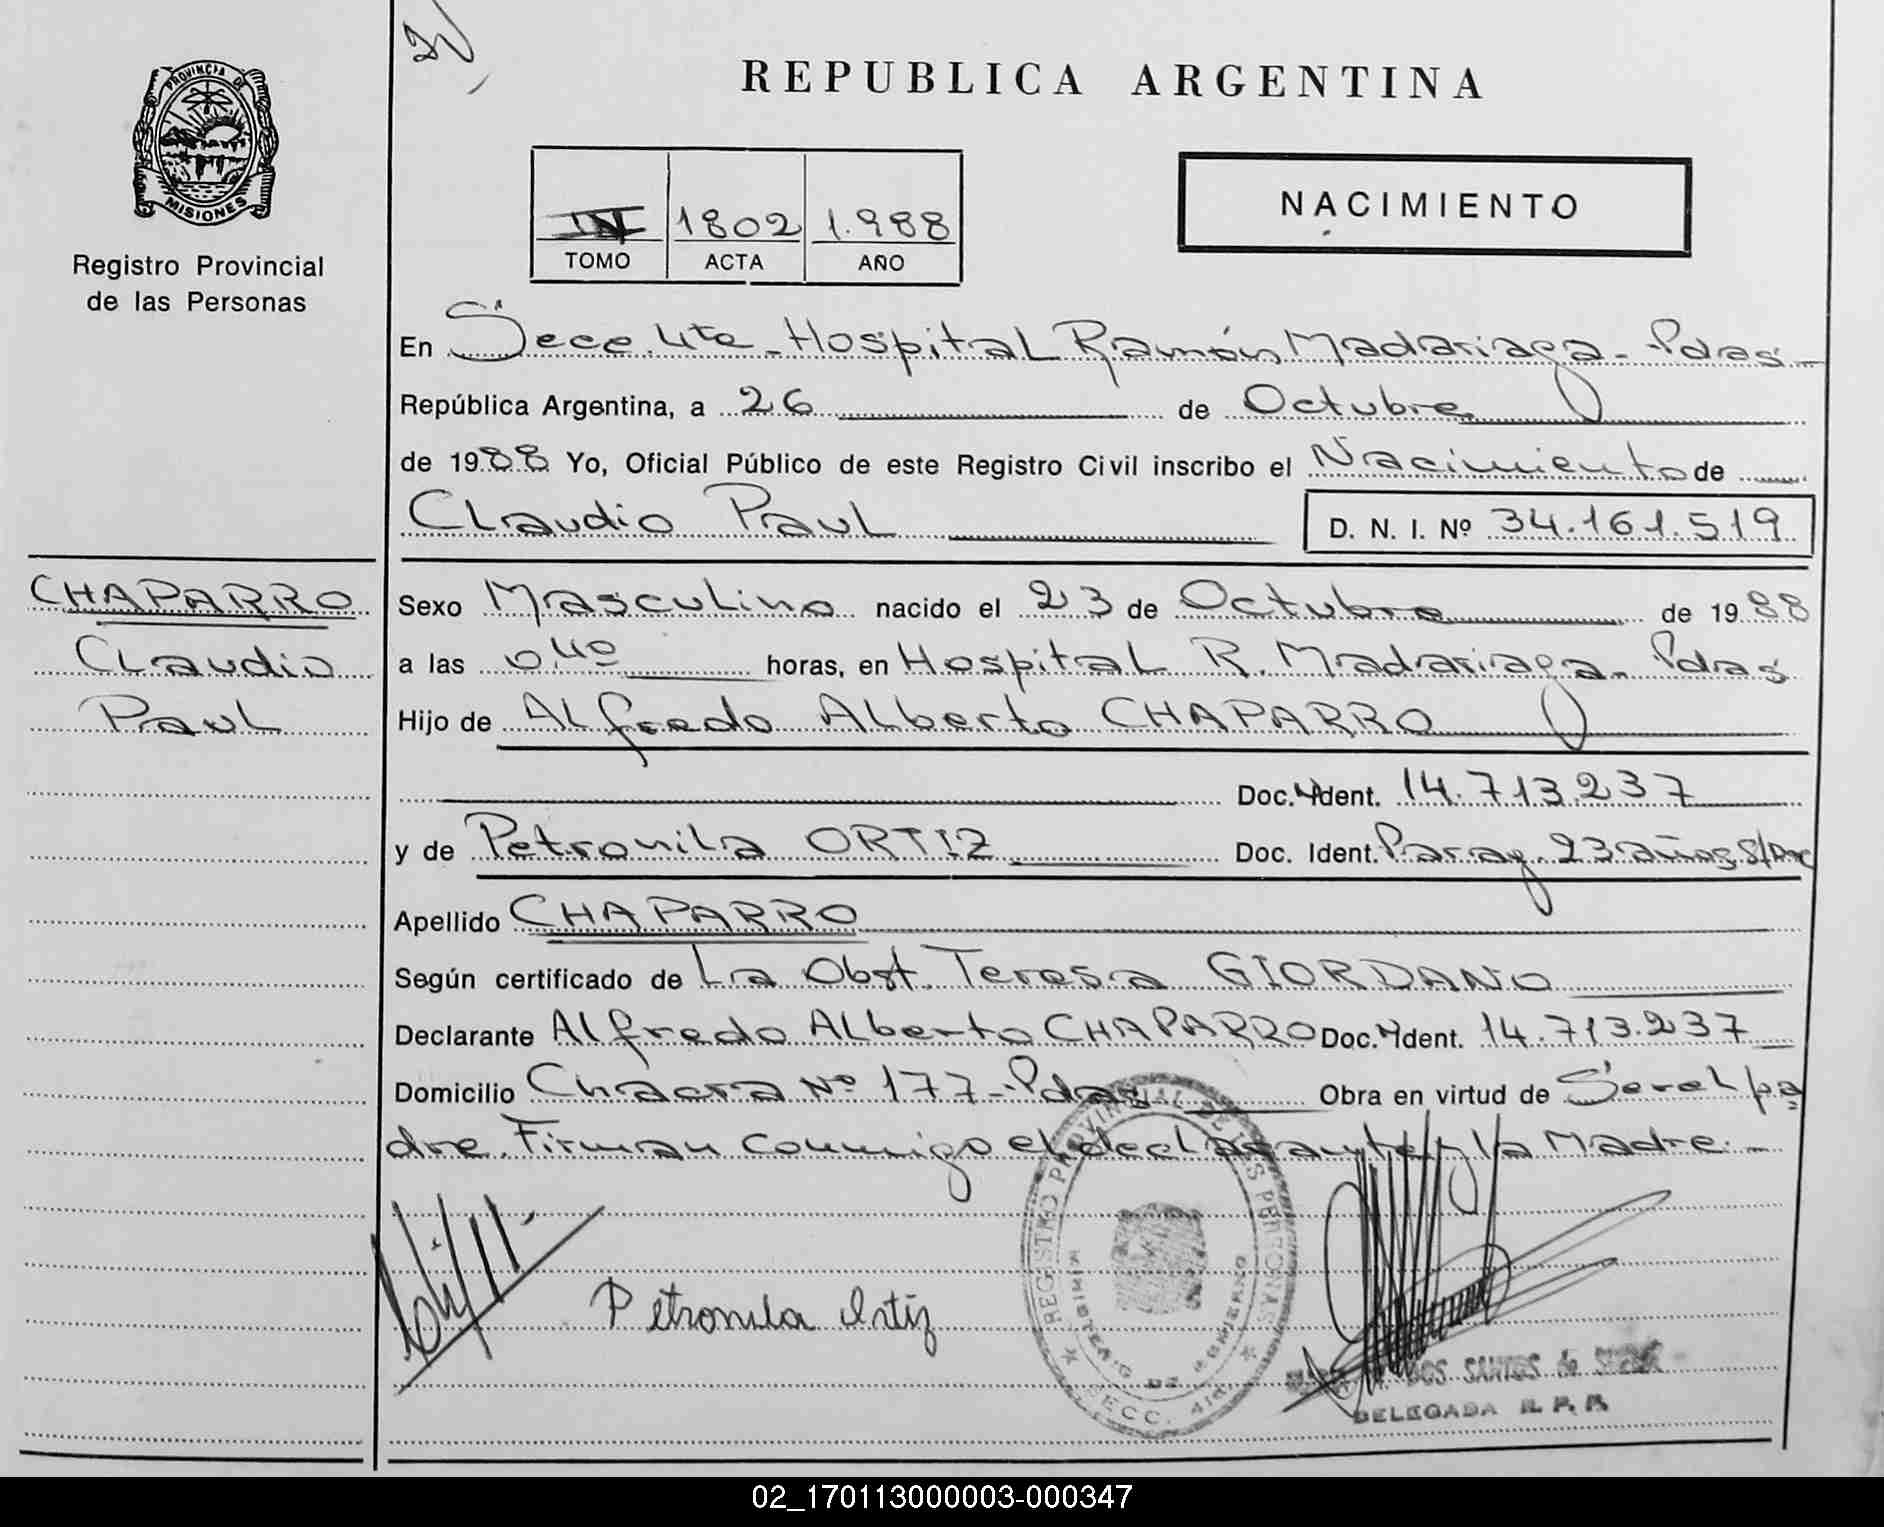 IV
REPUBLICA ARGENTINA
PROVINCIA DE
MISIONES
Registro Provincial
de las Personas
1802 1.988
TOMO ACTA AÑO
NACIMIENTO
En Secc. 4ta - Hospital Ramón Madariaga - Pdas -
República Argentina, a 26 de Octubre
de 1988 Yo, Oficial Público de este Registro Civil inscribo el Nacimiento de
Claudio Paul D. N. I. Nº 34.161.519
CHAPARRO
Claudio
Paul
Sexo Masculino nacido el 23 de Octubre de 1988
a las 0,40 horas, en Hospital R. Madariaga - Pdas
Hijo de Alfredo Alberto CHAPARRO
Doc. Ident. 14.713.237
y de Petronila ORTIZ Doc. Ident. Parag. 23 años S/Doc
Apellido CHAPARRO
Según certificado de La Obst. Teresa GIORDANO
Declarante Alfredo Alberto CHAPARRO Doc. Ident. 14.713.237
Domicilio Chacra Nº 177 - Pdas Obra en virtud de Ser el pa
dre. Firman conmigo el declarante y la Madre. -
Petronila Ortiz
REGISTRO PROVINCIAL DE LAS PERSONAS
SECC. 4ta.
DOS SANTOS de
DELEGADA R. P. P.
02_170113000003-000347